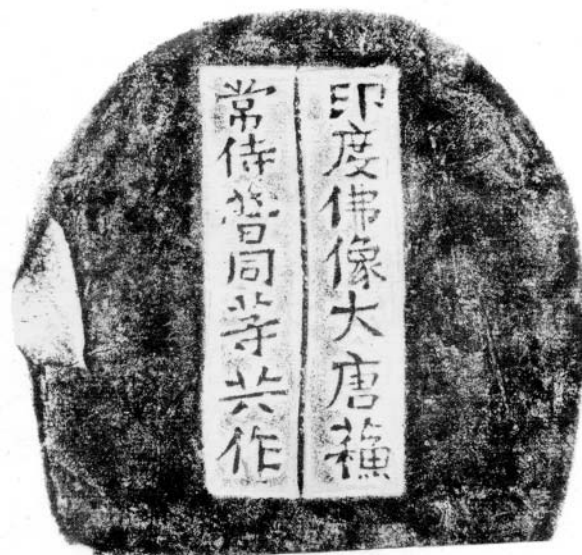 印度佛像大唐蘓
常侍普同等共作